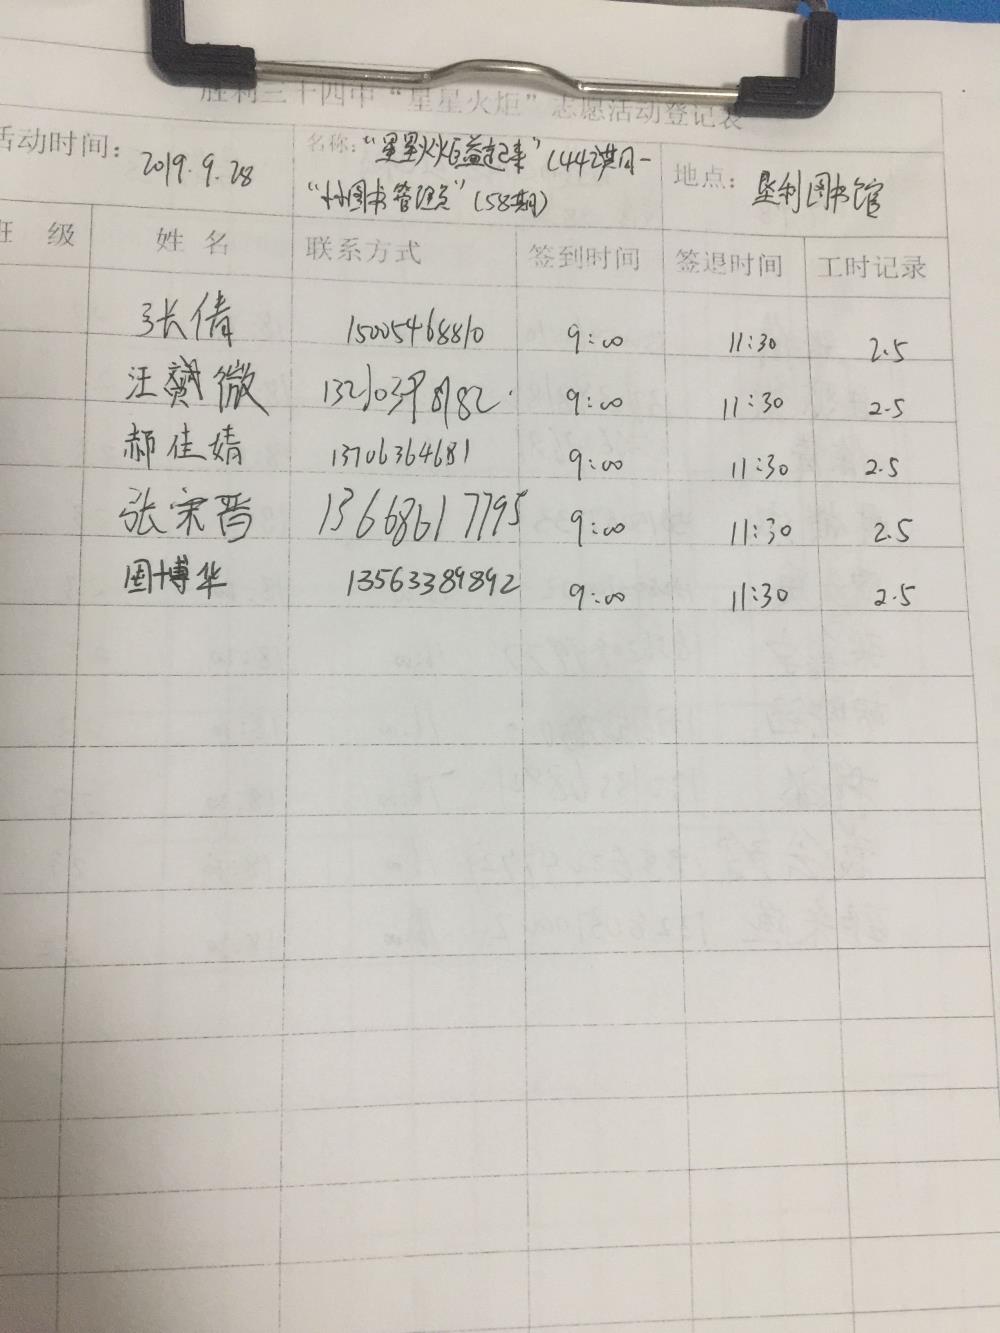 胜利三十四中“星星火炬”志愿活动登记表
活动时间： 2019.9.28 名称：“星星火炬益起来”(442期)- 地点： 垦利图书馆
“小图书管理员”(58期)
班 级 姓 名 联系方式 签到时间 签退时间 工时记录
张倩 15005468810 9:00 11:30 2.5
汪 微 9:00 11:30 2.5
郝佳婧 13706364681 9:00 11:30 2.5
张宗晋 13668617795 9:00 11:30 2.5
国博华 13563389892 9:00 11:30 2.5